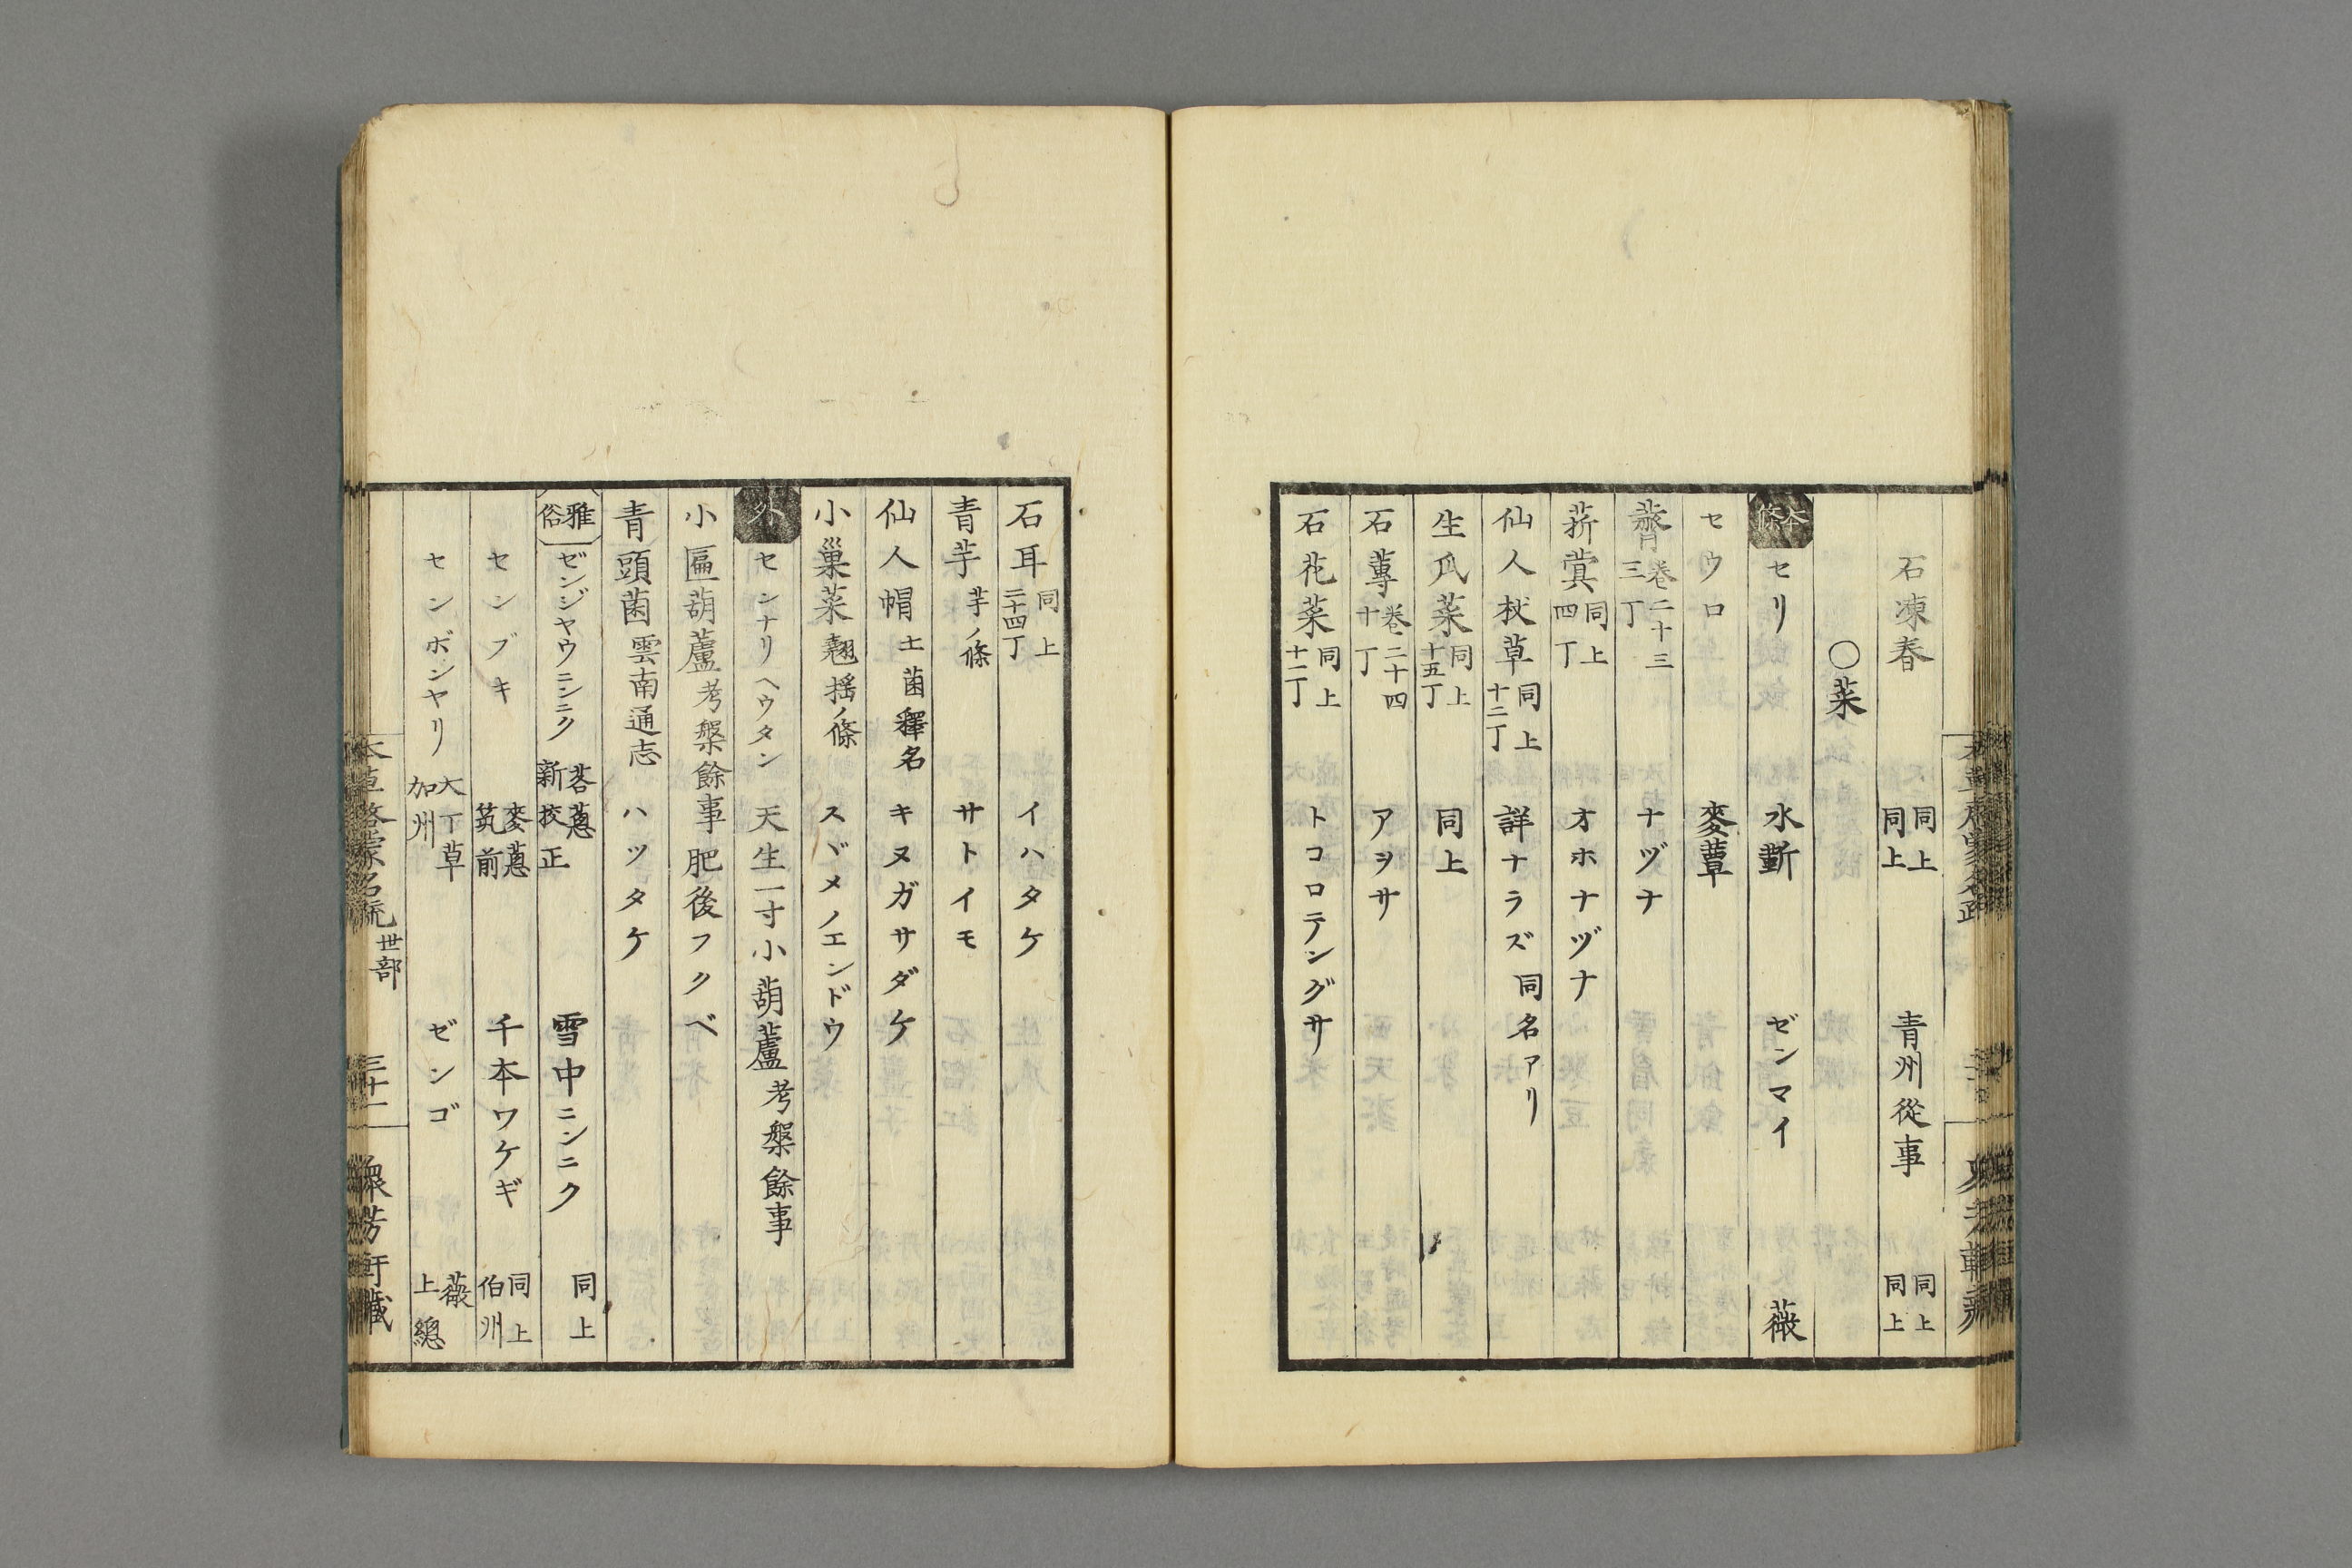 石凍春 同上 同上 青州從事 同上 同上
○菜
本條 セリ 水斳 ゼンマイ 薇
セウロ 麥蕈
薺 卷二十三 三丁 ナヅナ
菥蓂 同上 四丁 オホナヅナ
仙人杖草 同上 十二丁 詳ナラズ同名アリ
生瓜菜 同上 十五丁 同上
石蓴 卷二十四 十丁 アヲサ
石花菜 同上 十一丁 トコロテングサ
石耳 同上 二十四丁 イハタケ
青芋 芋ノ條 サトイモ
仙人帽 土菌釋名 キヌガサダケ
小巢菜 翹揺ノ條 スヾメノエンドウ
外 センナリヘウタン 天生一寸小葫蘆 考槃餘事
小匾葫蘆 考槃餘事 肥後フクベ
青頭菌 雲南通志 ハツタケ
雅俗 ゼンジヤウニンニク 茖蔥 新挍正 雪中ニンニク 同上
センブキ 麥蔥 筑前 千本ワケギ 同上 伯州
センボンヤリ 大丁草 加州 ゼンゴ 薇 上總
本草啓蒙名疏 世部 三十一 衆芳軒藏